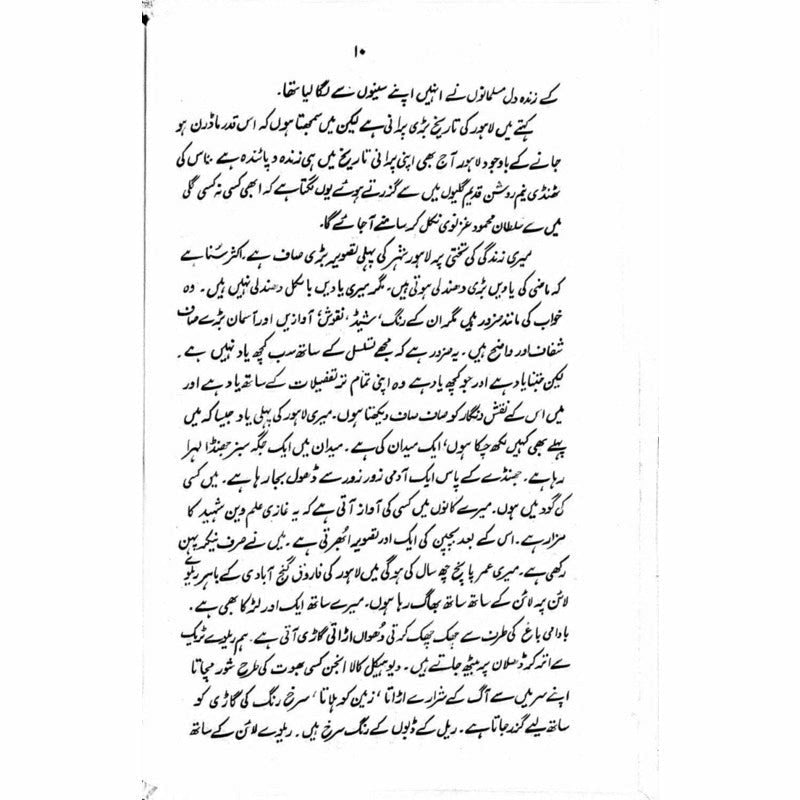 ۱۰
کے زندہ دل مسلمانوں نے انہیں اپنے سینوں سے لگا لیا تھا۔
کہتے ہیں لاہور کی تاریخ بڑی پرانی ہے لیکن میں سمجھتا ہوں کہ اس قدر ماڈرن ہو
جانے کے باوجود لاہور آج بھی اپنی پرانی تاریخ میں ہی زندہ و پائندہ ہے ناس کی
ٹھنڈی نیم روشن قدیم گلیوں میں سے گزرتے ہوئے یوں لگتا ہے کہ ابھی کسی نہ کسی گلی
میں سے سلطان محمود غزنوی نکل کر سامنے آ جائے گا۔
میری زندگی کی تختی پر لاہور شہر کی پہلی تصویر بڑی صاف ہے۔ اکثر سُنا ہے
کہ ماضی کی یادیں بڑی دھندلی ہوتی ہیں۔ مگر میری یادیں بالکل دھندلی نہیں ہیں۔ وہ
خواب کی مانند ضرور ہیں مگر ان کے رنگ، شیڈ، نقوش، آوازیں اور آسمان بڑے صاف
شفاف اور واضح ہیں۔ یہ ضرور ہے کہ مجھے تسلسل کے ساتھ سب کچھ یاد نہیں ہے۔
لیکن جتنا یاد ہے اور جو کچھ یاد ہے وہ اپنی تمام تر تفصیلات کے ساتھ یاد ہے اور
میں اس کے نقش و نگار کو صاف صاف دیکھتا ہوں۔ میری لاہور کی پہلی یاد جیسا کہ میں
پہلے بھی کہیں لکھ چکا ہوں، ایک میدان کی ہے۔ میدان میں ایک جگہ سبز جھنڈا لہرا
رہا ہے۔ جھنڈے کے پاس ایک آدمی زور زور سے ڈھول بجا رہا ہے۔ میں کسی
کی گود میں ہوں۔ میرے کانوں میں کسی کی آواز آتی ہے کہ یہ غازی علم دین شہید کا
مزار ہے۔ اس کے بعد بچپن کی ایک اور تصویر اُبھرتی ہے۔ میں نے صرف نیکر پہن
رکھی ہے۔ میری عمر پانچ چھ سال کی ہوگی میں لاہور کی فاروق گنج آبادی کے باہر ریلوے
لائن پر لائن کے ساتھ ساتھ بھاگ رہا ہوں۔ میرے ساتھ ایک اور لڑکا بھی ہے۔
بادامی باغ کی طرف سے چھک چھک کرتی دُھواں اڑاتی گاڑی آتی ہے۔ ہم ریلوے ٹریک
سے اتر کر ڈھلان پر بیٹھ جاتے ہیں۔ دیوہیکل کالا انجن کسی بھوت کی طرح شور مچاتا
اپنے سر میں سے آگ کے شرارے اڑاتا، زمین کو ہلاتا، سرخ رنگ کی گاڑی کو
ساتھ لیے گزر جاتا ہے۔ ریل کے ڈبوں کے رنگ سرخ ہیں۔ ریلوے لائن کے ساتھ